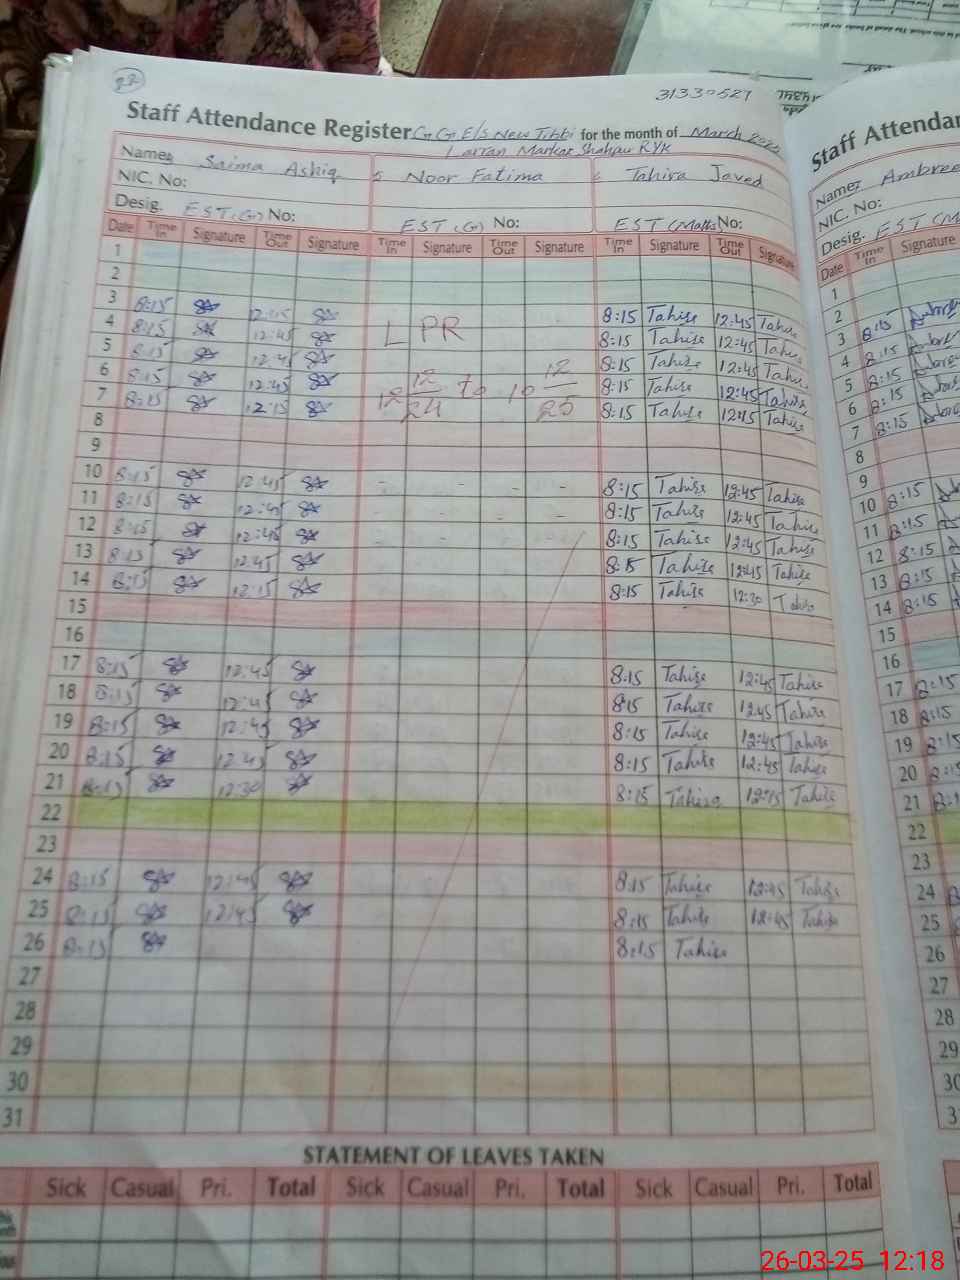 27
31330527
Staff Attendance Register G G E/S New Tibbi for the month of March 2025
Larran Markaz Shahpur RYK
Name: Saima Ashiq Noor Fatima Tahira Javed
NIC. No:
Desig. EST (G) No: EST (G) No: EST (Math) No:
Date Time In Signature Time Out Signature Time In Signature Time Out Signature Time In Signature Time Out Signature
1
2
3 8:15 12:45 8:15 Tahira 12:45 Tahira
4 8:15 12:45 L PR 8:15 Tahira 12:45 Tahira
5 8:15 12:45 8:15 Tahira 12:45 Tahira
6 8:15 12:45 12 12/24 to 10 12/25 8:15 Tahira 12:45 Tahira
7 8:15 12:15 8:15 Tahira 12:15 Tahira
8
9
10 8:15 12:45 - - - - 8:15 Tahira 12:45 Tahira
11 8:15 12:45 - - - - 8:15 Tahira 12:45 Tahira
12 8:15 12:45 - - - - 8:15 Tahira 12:45 Tahira
13 8:15 12:45 8:15 Tahira 12:45 Tahira
14 8:15 12:15 8:15 Tahira 12:30 Tahira
15
16
17 8:15 12:45 8:15 Tahira 12:45 Tahira
18 8:15 12:45 8:15 Tahira 12:45 Tahira
19 8:15 12:45 8:15 Tahira 12:45 Tahira
20 8:15 12:45 8:15 Tahira 12:45 Tahira
21 8:15 12:30 8:15 Tahira 12:15 Tahira
22
23
24 8:15 12:45 8:15 Tahira 12:45 Tahira
25 8:15 12:45 8:15 Tahira 12:45 Tahira
26 8:15 8:15 Tahira
27
28
29
30
31
STATEMENT OF LEAVES TAKEN
Sick Casual Pri. Total Sick Casual Pri. Total Sick Casual Pri. Total
Staff Attendan
Name: Ambree
NIC. No:
Desig. EST (M
Date Time In Signature
1
2
3 8:15
4 8:15
5 8:15
6 8:15
7 8:15
8
9
10 8:15
11 8:15
12 8:15
13 8:15
14 8:15
15
16
17 8:15
18 8:15
19 8:15
20 8:15
21 8:1
22
23
24
25
26
27
28
29
30
3
26-03-25 12:18